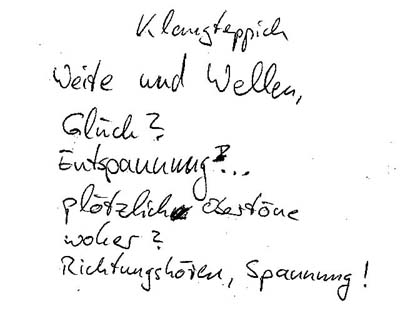 Klangteppich
Weite und Wellen,
Glück?
Entspannung?...
plötzlich obertöne
woher?
Richtungshören, Spannung!